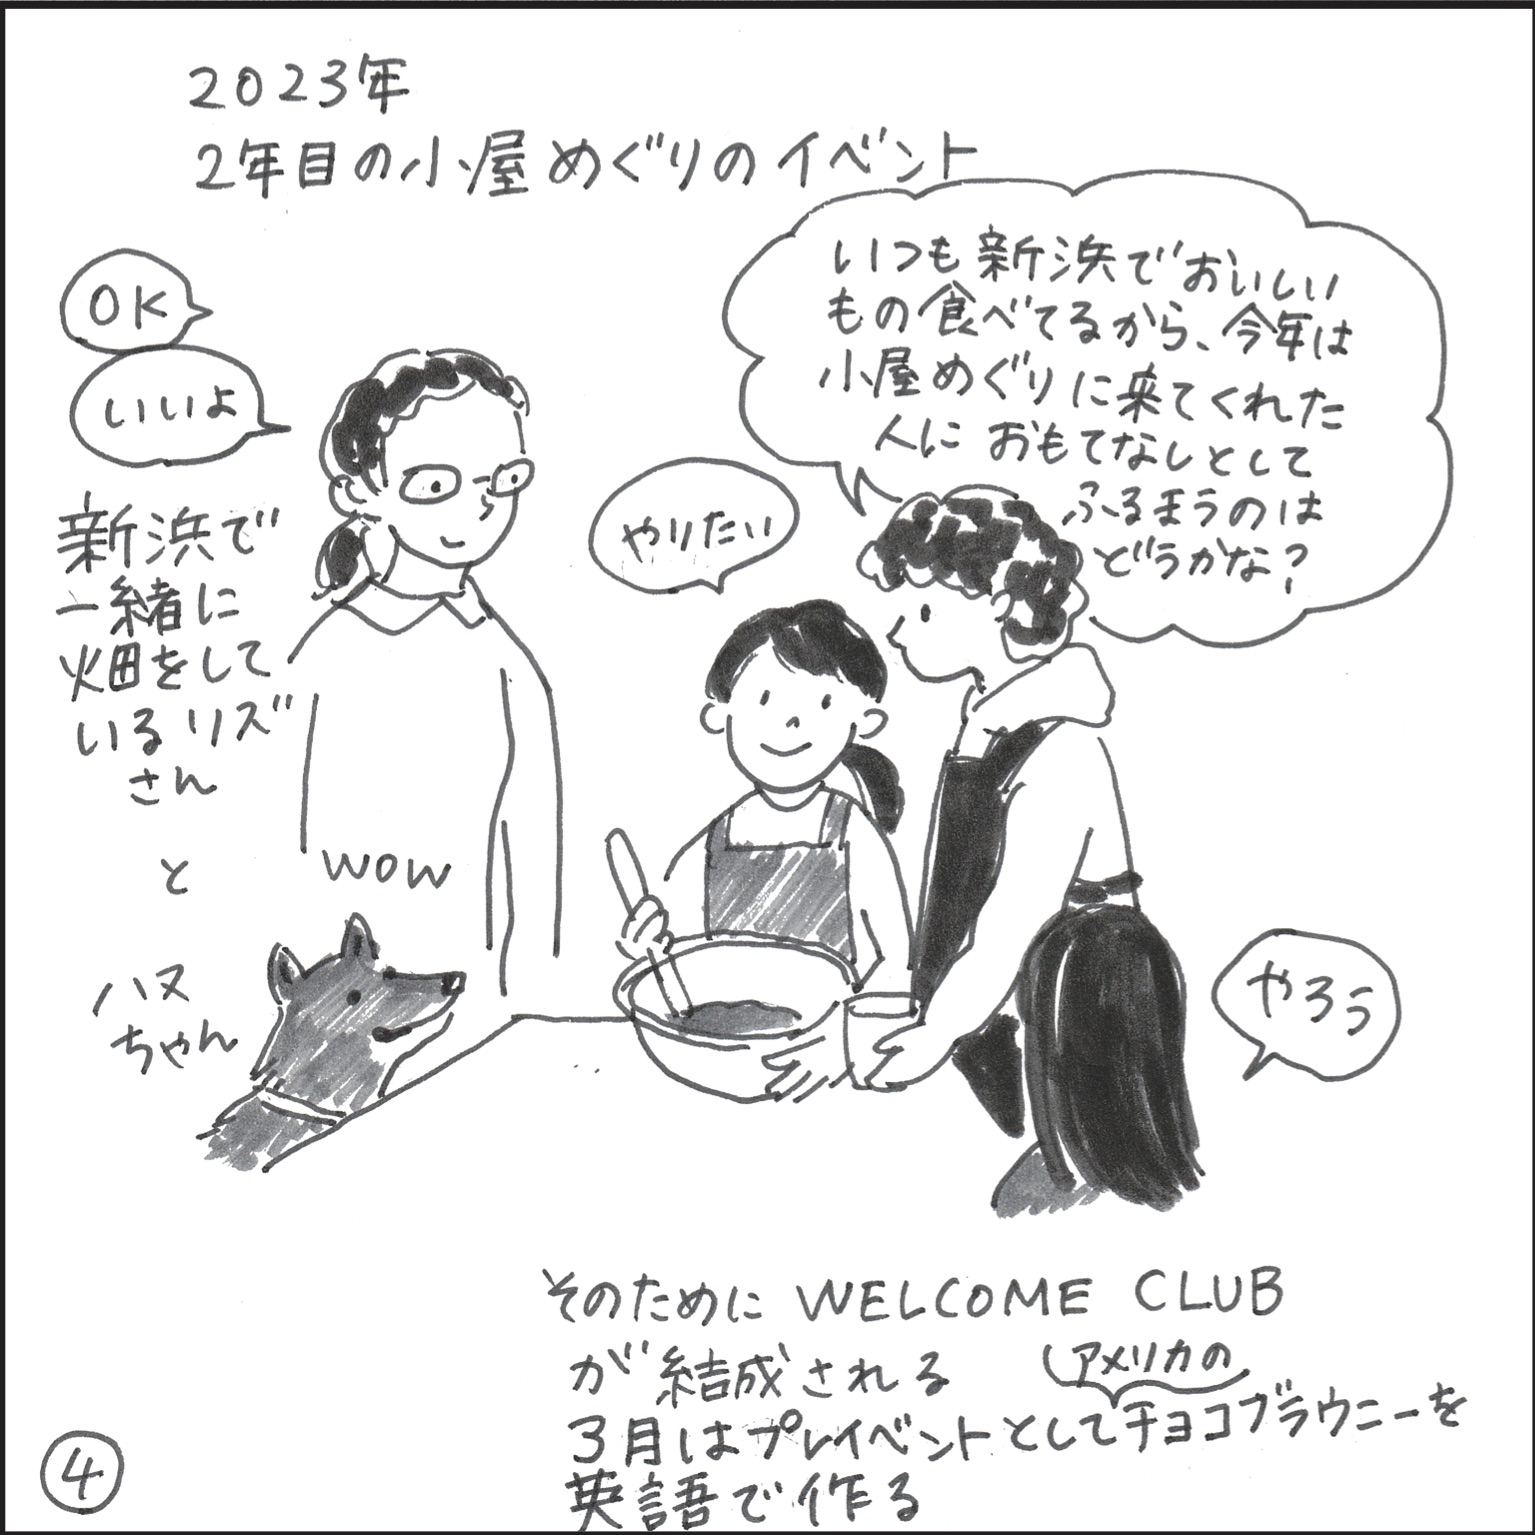 2023年
2年目の小屋めぐりのイベント
OK
いいよ
いつも新浜でおいしい
もの食べてるから、今年は
小屋めぐりに来てくれた
人に おもてなしとして
ふるまうのは
どうかな?
やりたい
新浜で
一緒に
畑をして
いるリズ
さん
と
ハヌ
ちゃん
WOW
やろう
そのために WELCOME CLUB
が結成される
アメリカの
3月はプレイベントとしてチョコブラウニーを
英語で作る
4